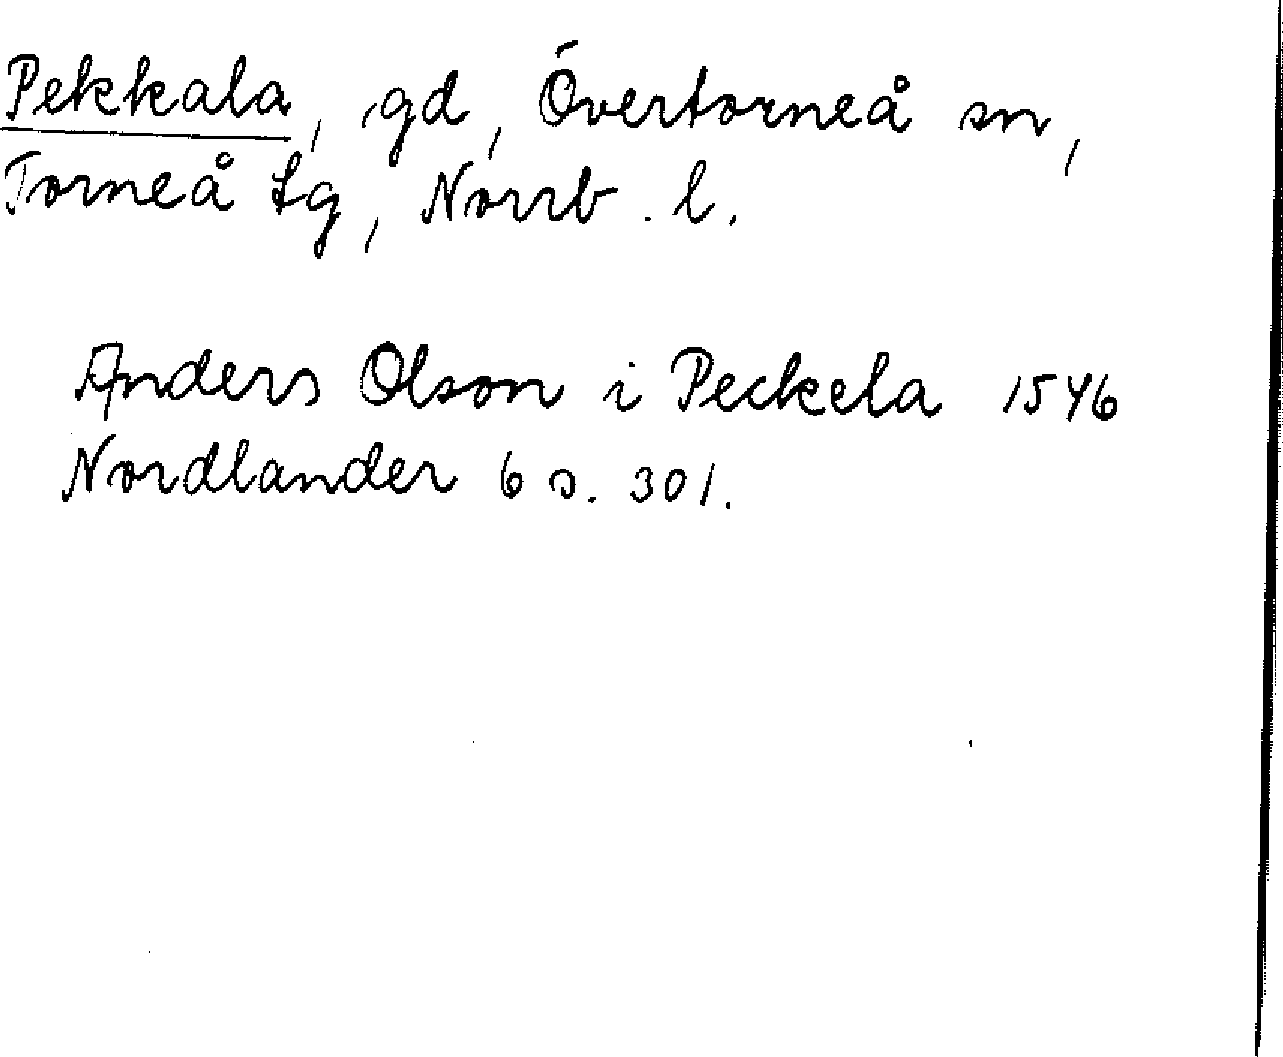 Pekkala, gd, Övertorneå sn,
Torneå tg, Norrb. l.
Anders Olson i Peckela 1546
Nordlander 6 s. 301.